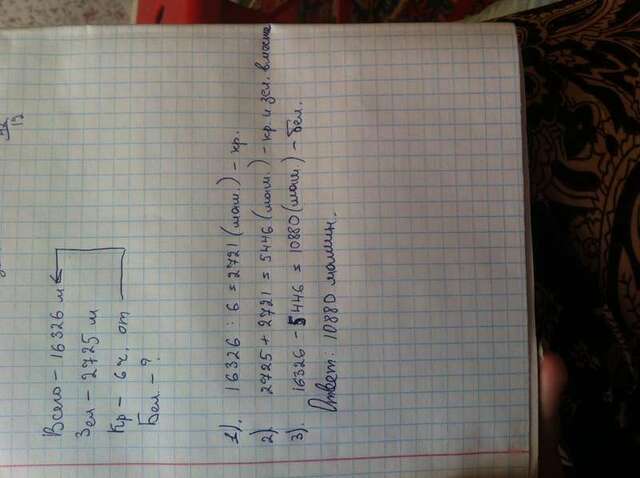 12
Всего - 16326 м
Зел - 2725 м
Кр - 6 ч. от
Бел. - ?
1). 16326 : 6 = 2721 (маш.) - кр.
2). 2725 + 2721 = 5446 (маш.) - кр. и зел. вместе
3). 16326 - 5446 = 10880 (маш) - бел.
Ответ: 10880 машин.